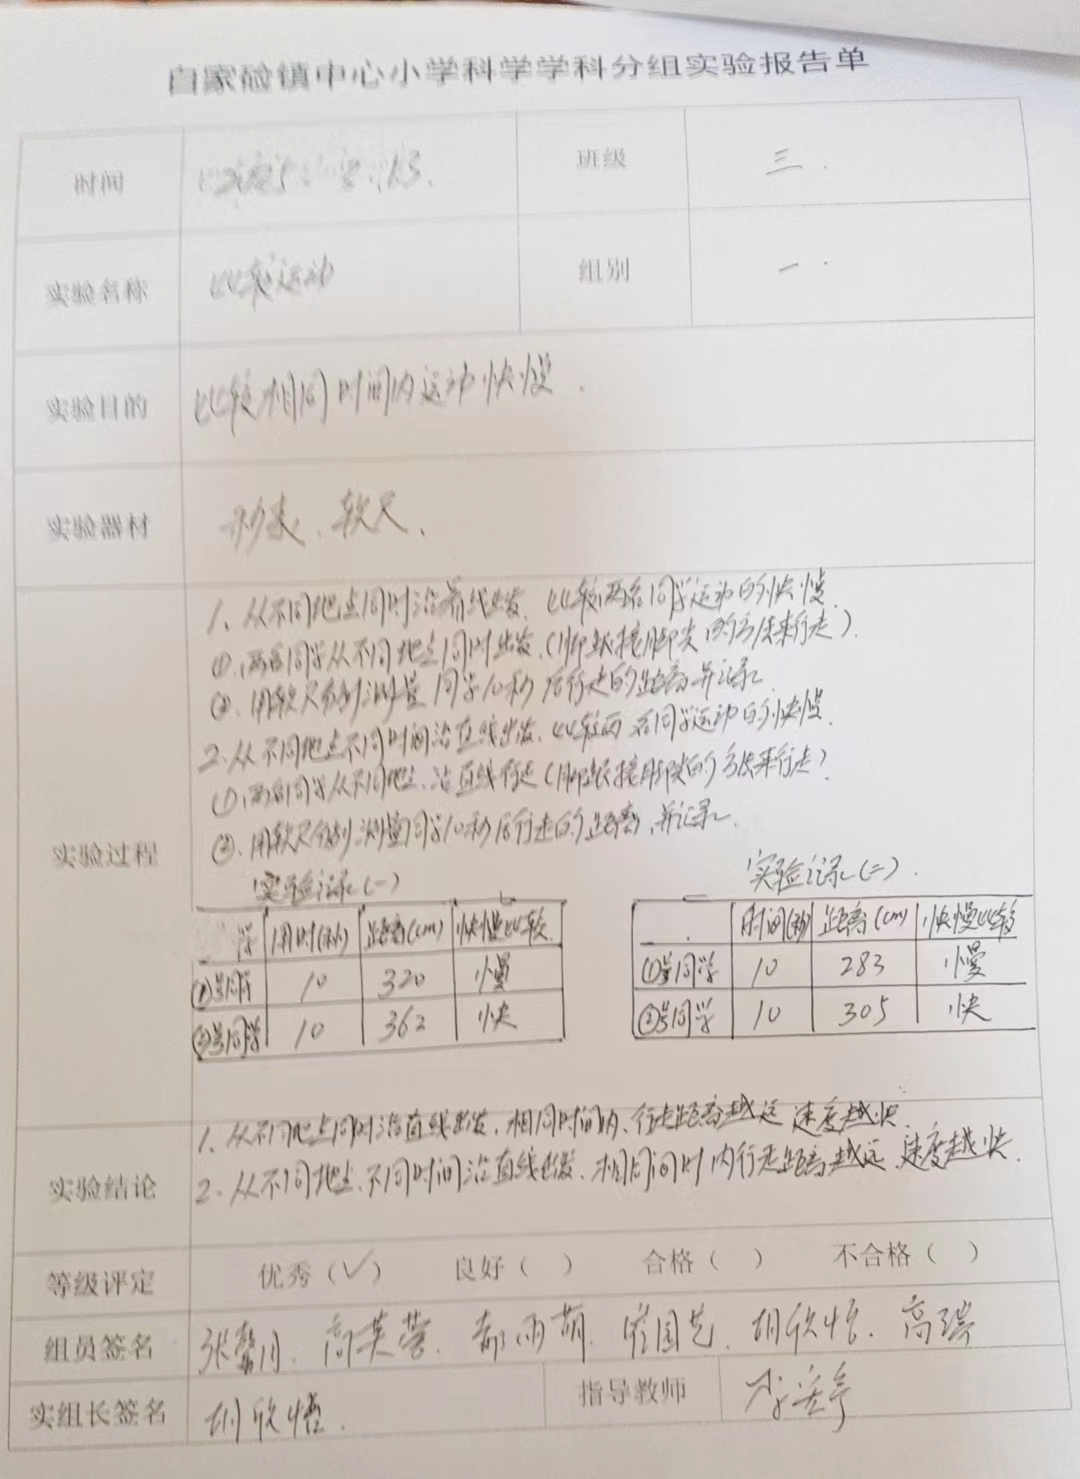 白家硷镇中心小学科学学科分组实验报告单
时间 班级 三.
实验名称 比较运动 组别 一.
实验目的 比较相同时间内运动快慢.
实验器材 秒表、软尺、
实验过程
1、从不同地点同时沿着线出发、比较两名同学运动的快慢
①、两名同学从不同地点同时出发、(脚跟接脚尖的方法来行走).
②、用软尺分别测量同学10秒后行走的距离并记录
2.从不同地点不同时间沿直线出发、比较两名同学运动的快慢.
①、两名同学从不同地点、沿直线行走(脚跟接脚尖的方法来行走).
②、用软尺分别测量同学10秒后行走的距离、并记录.
实验记录(一)
学 用时(秒) 距离(cm) 快慢比较
①号同学 10 320 慢
②号同学 10 362 快
实验记录(二).
时间(秒) 距离(cm) 快慢比较
①号同学 10 283 慢
②号同学 10 305 快
实验结论
1.从不同地点同时沿直线出发、相同时间内、行走距离越远 速度越快.
2.从不同地点、不同时间沿直线出发、相同间时内行走距离越远、速度越快.
等级评定 优秀(✓) 良好( ) 合格( ) 不合格( )
组员签名 张馨月、高英蕾、郝雨萌、 胡欣悟、高瑞
实组长签名 胡欣悟. 指导教师